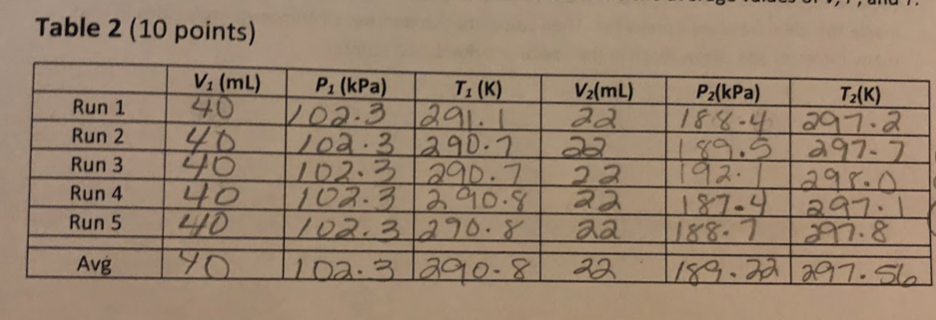 average values of V, P, and T.
Table 2 (10 points)
V₁ (mL) P₁ (kPa) T₁ (K) V₂(mL) P₂(kPa) T₂(K)
Run 1 40 102.3 291.1 22 188.4 297.2
Run 2 40 102.3 290.7 22 189.5 297.7
Run 3 40 102.3 290.7 22 192.1 298.0
Run 4 40 102.3 290.8 22 187.4 297.1
Run 5 40 102.3 290.8 22 188.7 297.8
Avg 40 102.3 290.8 22 189.22 297.56